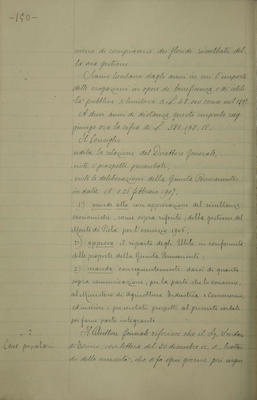 -150-
meno di compiacersi dei floridi risultati del-
la sua gestione.
Siamo lontani dagli anni in cui l'importo
delle erogazioni in opere di beneficenza e di utili-
tà pubblica si limitava a £ 48.000 come nel 1897.
A dieci anni di distanza questo importo rag-
giunge ora la cifra di £
Il Consiglio
udita la relazione del Direttore Generale,
visti i prospetti presentati,
viste le deliberazioni della Giunta Permanente
in data 18 e 25 febbraio 1907,
1) manda alla con approvazione del risultamento
economiche, come sopra riferite, della gestione del
Monte di Pietà per l'esercizio 1906,
2) approva il riparto degli Utili in conformità
delle proposte della Giunta Permanente;
3) manda conseguentemente darsi di quanto
sopra comunicazione, per la parte che lo concerne,
al Ministero di Agricoltura Industria e Commercio
ed inserirsi i presentati prospetti al presente verbale
per farne parte integrante.
Case popolari
Il Direttore Generale riferisce che il Sig.
con lettera del 30 dicembre u. s.
che si fa ogni giorno più